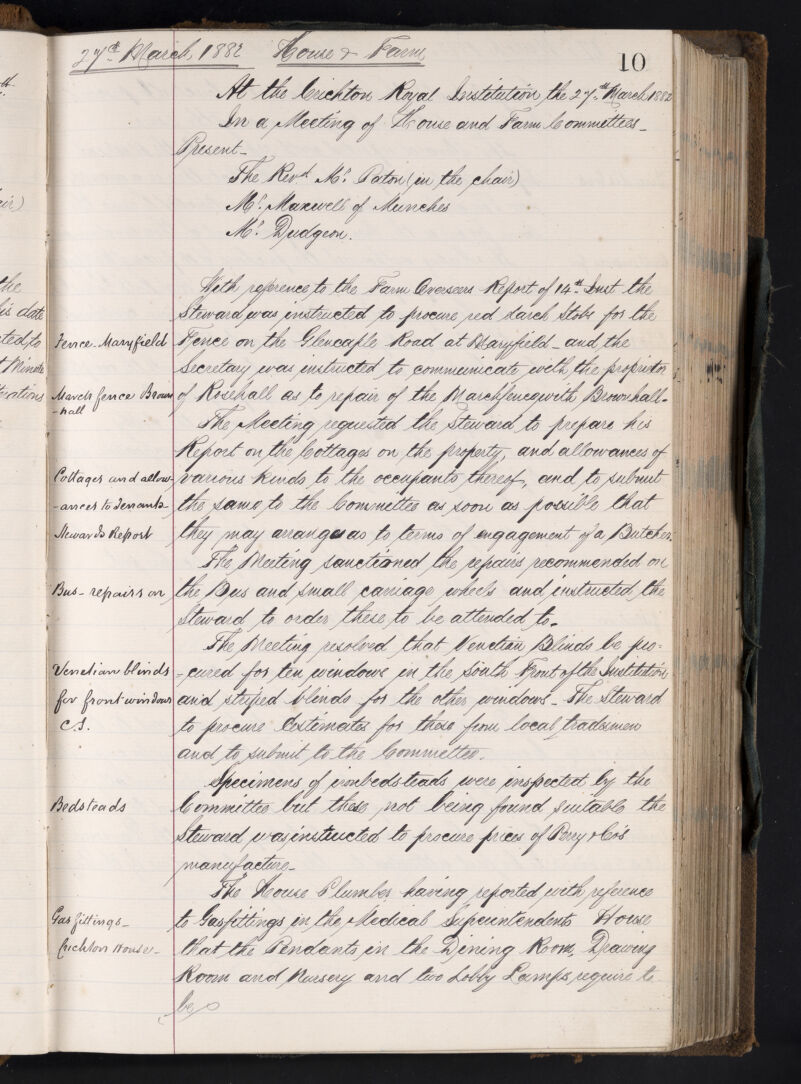 27th March, 1882 House & Farm
10
At the Crichton Royal Institution, the 27th March 1882
In a Meeting of House and Farm Committees_
Present_
The Revd. Mr. Paton (in the chair)
Mr. Maxwell of Munches
Mr. Dudgeon.
With reference to the Farm Overseers Report of 14th Inst the
Steward was instructed to procure red Larch Stobs for the
Fence-Maryfield
Fence on the Glencaple Road at Maryfield_ and the
Secretary was instructed to communicate with the proprietor
March fence Brown
-hall
of Rosehall as to repair of the March fence with Brownhall.
The Meeting requested the Steward to prepare his
Report on the Cottages on the property, and allowances of
Cottages and allow-
various kinds to the occupants thereof, and to submit
-ances to Tenants
the same to the Committee as soon as possible that
Stewards Report
they may arrange as to terms of engagement of a Butcher.
The Meeting sanctioned the repairs recommended on
Bus_ repairs on
the Bus and small carriage wheels and instructed the
Steward to order these to be attended to_
The Meeting resolved that Venetian Blinds be pro=
Venetian blinds
=cured for ten windows in the South Front of the Institution,
for front windows
and striped blinds for the other windows_ The Steward
C.I.
to procure Estimates for these from local tradesmen
and to submit to the Committee.
Specimens of iron bedsteads were inspected by the
Bedsteads
Committee but these not being found suitable the
Steward was instructed to procure prices of Perry & Co's
manufacture_
The House Plumber having reported with reference
Gas fittings_
to Gasfittings in the Medical Superintendents House
Crichton House_
that the Pendants in the Dining Room, Drawing
Room and Nursery and two Lobby Lamps, require to
be